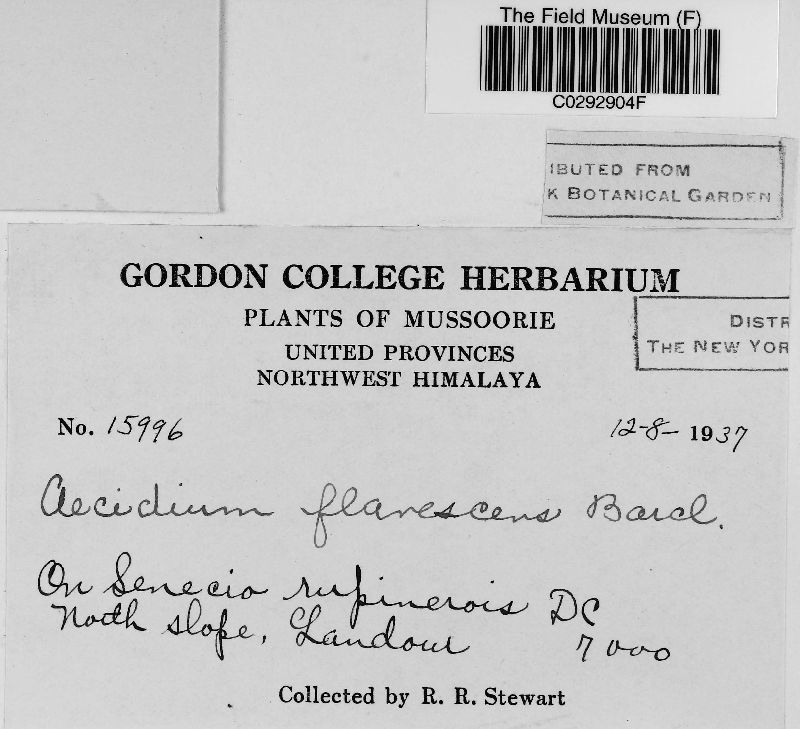 The Field Museum (F)
C0292904F
IBUTED FROM
K BOTANICAL GARDEN
GORDON COLLEGE HERBARIUM
PLANTS OF MUSSOORIE
UNITED PROVINCES
NORTHWEST HIMALAYA
DISTR
THE NEW YOR
No. 15996
12-8-1937
Aecidium flavescens Barcl.
On Senecio rupinerois DC
North slope, Landour 7000
Collected by R. R. Stewart